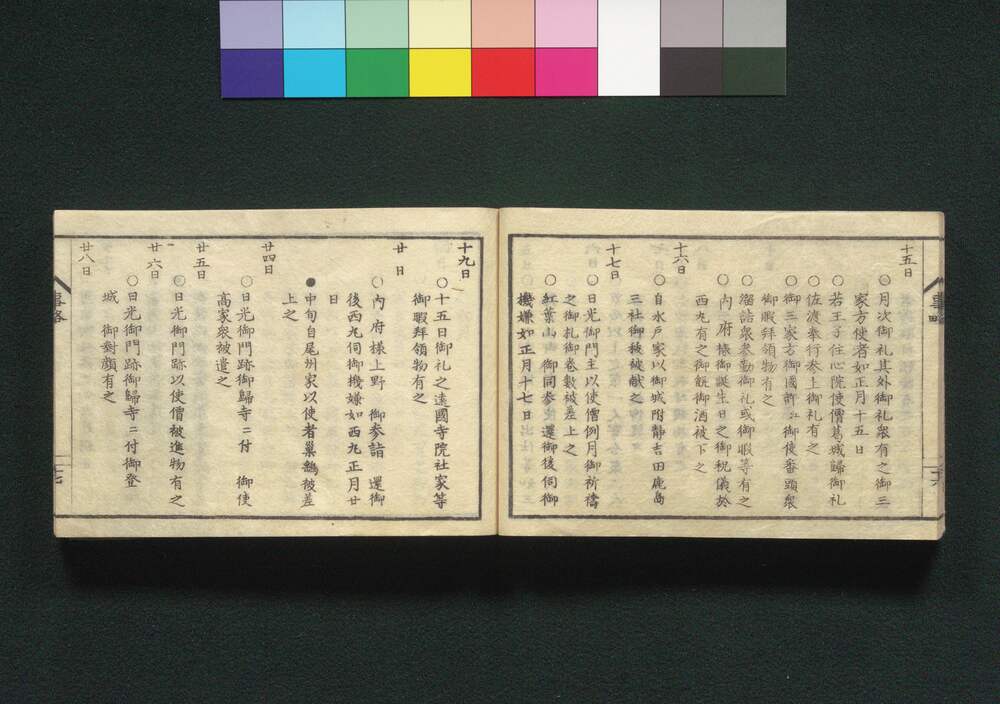 十五日
○月次御礼其外御礼衆有之御三
家方使者如正月十五日
○若王子住心院使僧葛城帰御礼
○佐渡奉行参上御礼有之
○御三家方御國許江御使番頭衆
御暇拝領物有之
○溜詰衆参勤御礼或御暇等有之
○内府様御誕生日之御祝儀於
西丸有之御餅御酒被下之
十六日
○自水戸家以御城附静吉田鹿島
三社御祓被献之
十七日
○日光御門主以使僧例月御祈祷
之御札御巻数被差上之
○紅葉山 御同参 還御後伺御
機嫌如正月十七日
十九日
○十五日御礼之遠國寺院社家等
御暇拝領物有之
廿日
○内府様上野 御参詣 還御
後西丸伺御機嫌如西丸正月廿
日
●中旬自尾州家以使者巣鷂被差
上之
廿四日
○日光御門跡御歸寺ニ付 御使
高家衆被遣之
廿五日
○日光御門跡以使僧被進物有之
廿六日
○日光御門跡御歸寺ニ付御登
城 御對顔有之
廿八日
事略